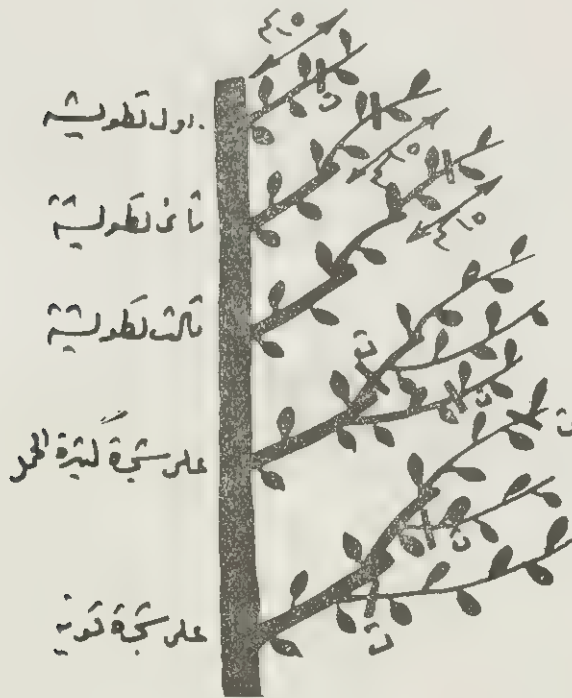 اول تطويشة
ت
ثانى تطويشة
ثالث تطويشة
ت
ت
ت
على شجرة كثيرة الحمل
ت
على شجرة قوية
ت